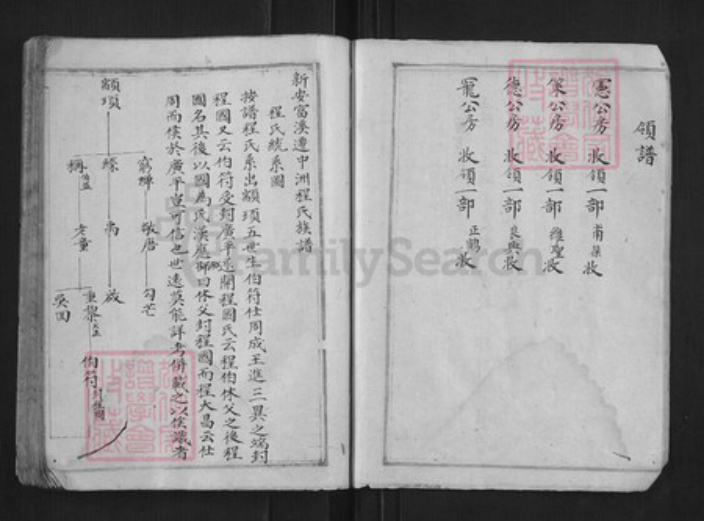 領譜
憲公房 收領一部 收
策公房 收領一部 維聖收
德公房 收領一部 良典收
寵公房 收領一部 正鶴收
新安富溪遷中洲程氏族譜
程氏統系圖
按譜程氏系出顓頊五世生伯符仕周成王進三異之端封
程國又云伯符受封廣平遂開程國氏云程伯休父之後程
國名其後以國為氏漢應邵曰休父封程國而程大昌云仕
周而侯於廣平宜可信也世遠莫能詳考併載之以俟識者
顓頊
窮蟬 敬康 句芒
鯀 禹 啟
稱 老童 重黎 伯符
吳回
FamilySearch